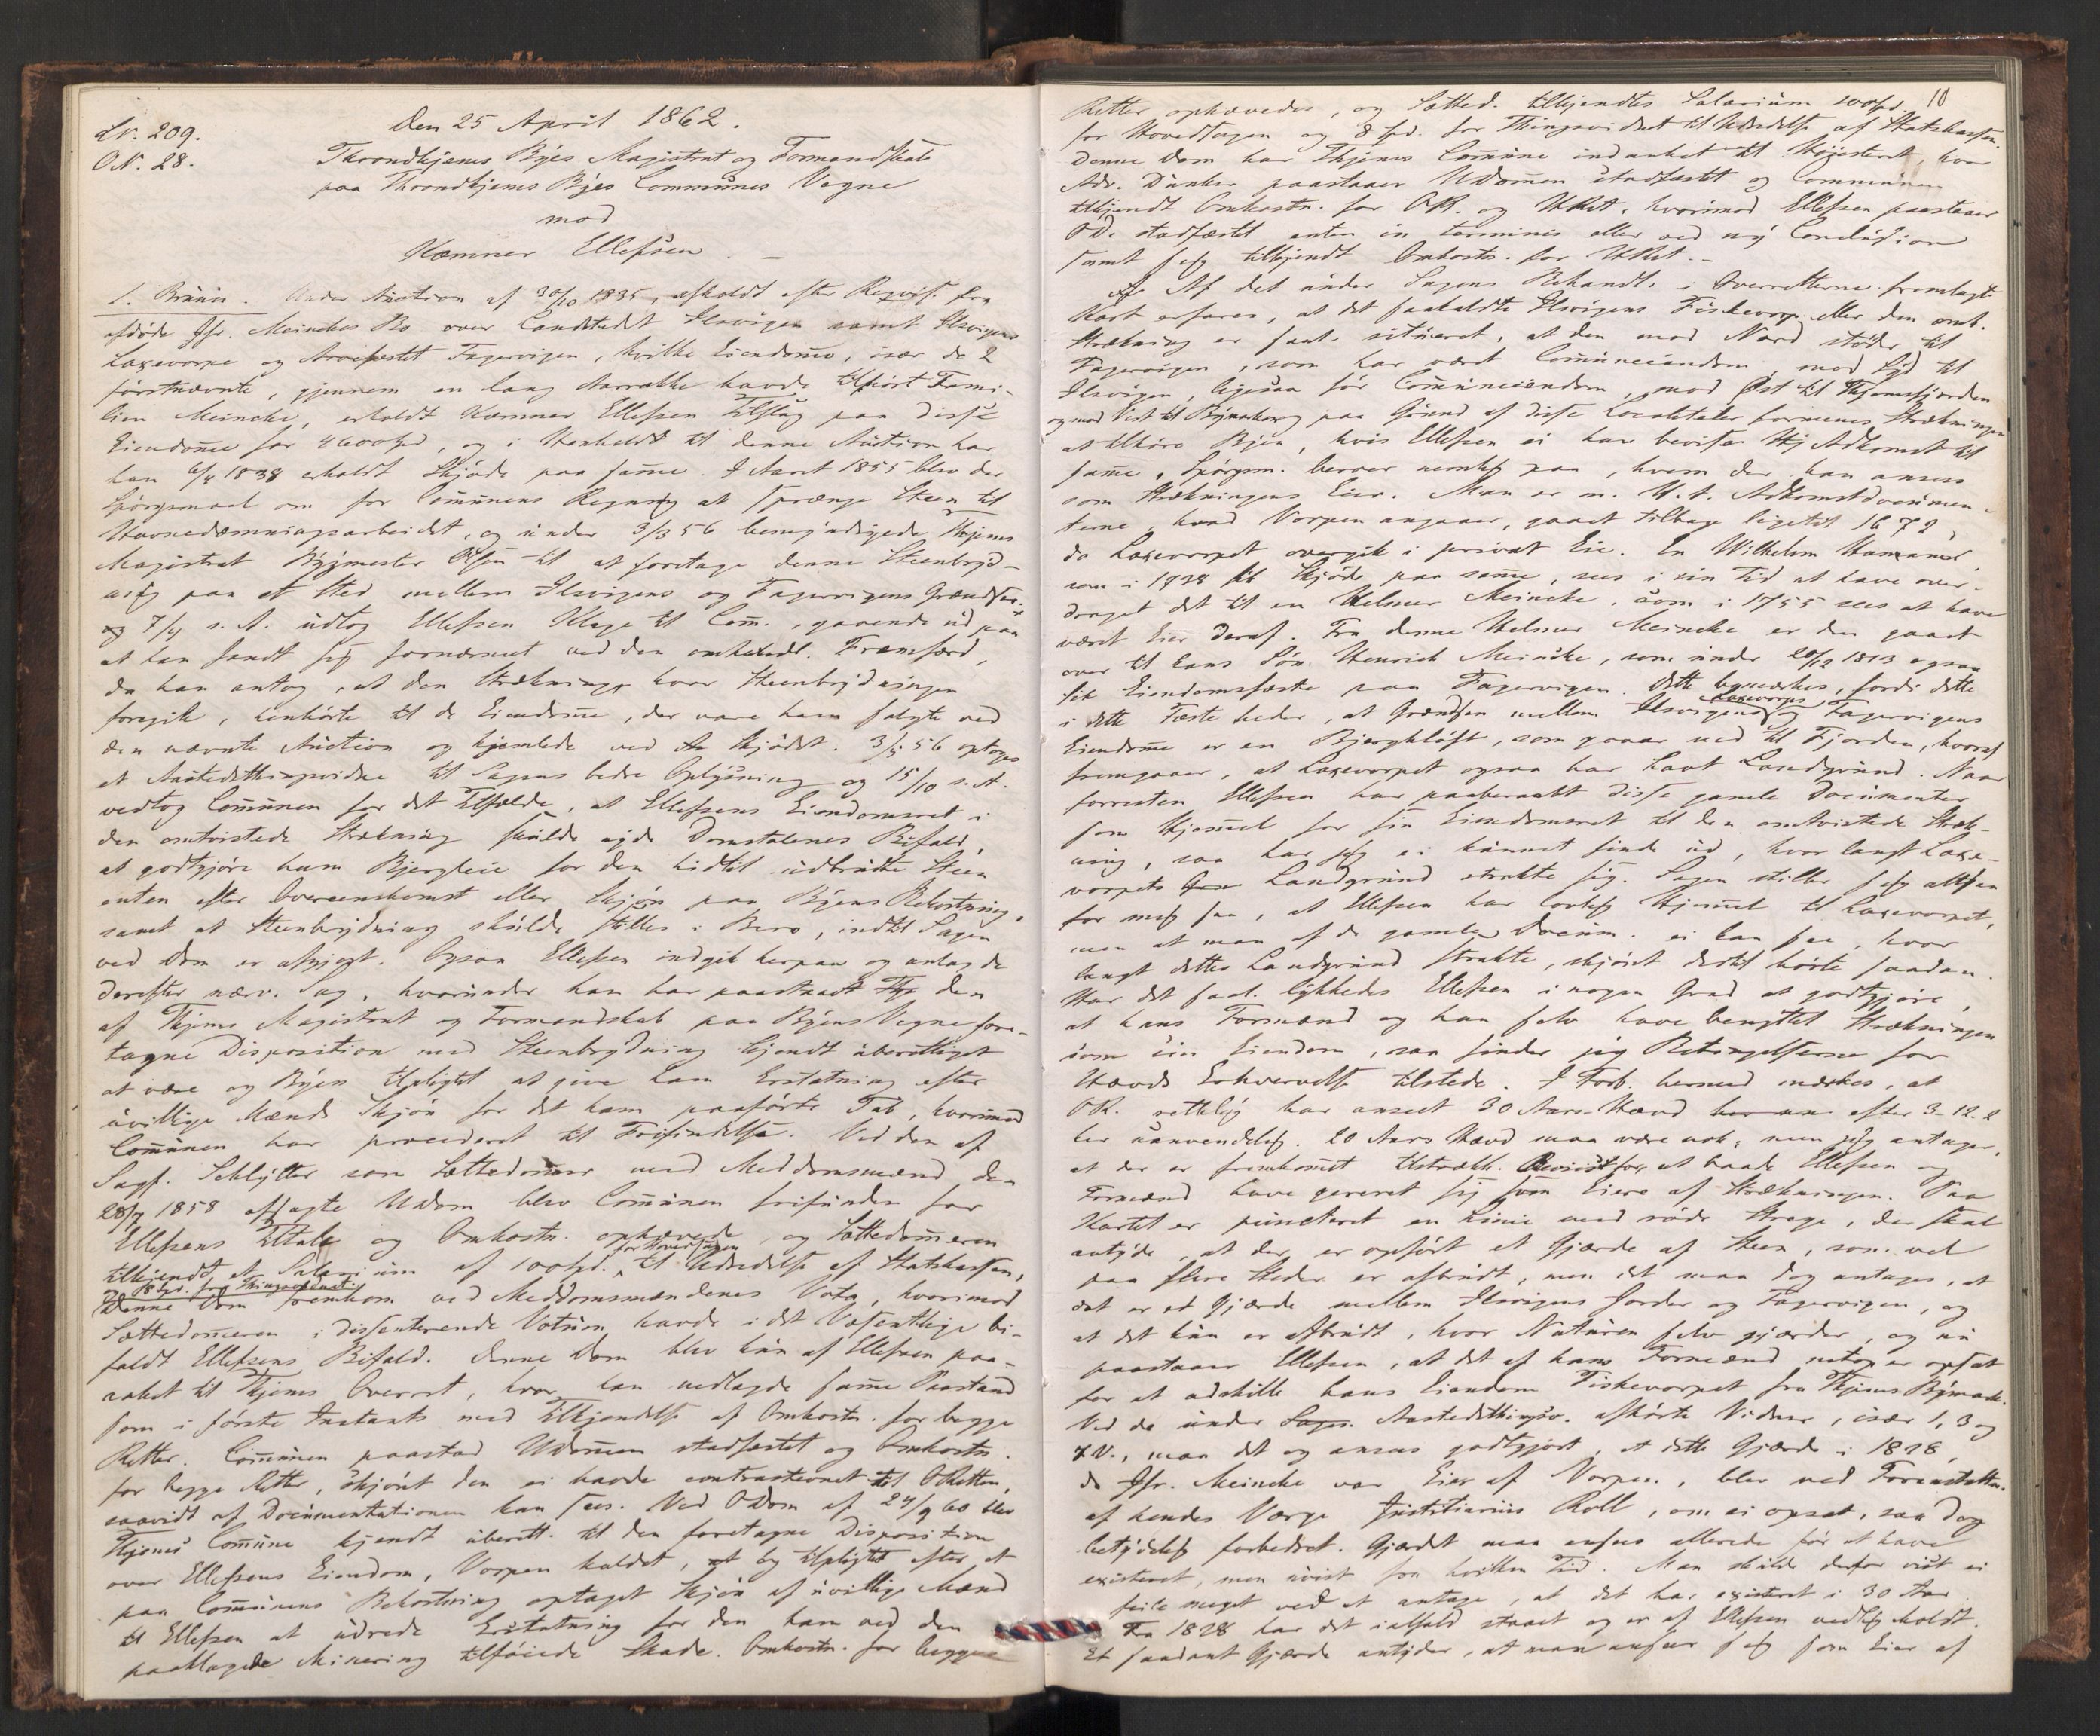 LN. 209.
ON. 28.
Den 25 April 1862.
Throndhjems Byes Magistrat og Formandskab
paa Throndhjems Byes Communes Vegne
mod
Kæmner Ellefsen. –
1. Brunn. Under Auction af 30/10 1835, afholdt efter Reqvis. fra
afdøde Jfr. Meinckes Bo over Landstedet Ilsvigen samt Ilsvigens
Laxevorpe og Arvefæstet Fagervigen, hvilke Eiendomme, især de 2
førstnævnte, gjennem en lang Aarrække havde tilhørt Fami-
lien Meincke, erholdt Kæmner Ellefsen Tilslag paa disse
Eiendomme for 4600 Spd, og i Henhold til denne Auction har
han 6/4 1838 erholdt Skjøde paa samme. I Aaret 1855 blev der
Spørgsmaal om for Communens Regning at sprænge Steen til
Havnedæmningsarbeidet, og under 3/3 56 bemyndigede Thjems
Magistrat Bygmester Olsen til at foretage denne Steenbryd-
ning paa et Sted mellem Ilsvigens og Fagervigens Grændser.
og 7/4 s. A. udtog Ellefsen Klage til Com., gaaende ud paa
at han fandt sig fornærmet ved den omhandl. Fremfærd,
da han antog, at den Strækning, hvor Steenbrydningen
foregik, henhørte til de Eiendomme, der vare ham solgte ved
den nævnte Auction og hjemlede ved Skjødet. 3/5 56 optoges
et Aastedsthingsvidne til Sagens bedre Oplysning og 15/10 s. A.
vedtog Communen for det Tilfælde, at Ellefsens Eiendomsret i
den omtvistede Strækning skulde nyde Domstolenes Bifald,
at godtgjøre ham Bjergleie for den hidtil udbrudte Steen
enten efter Overeenskomst eller Skjøn paa Byens Bekostning,
samt at Steenbrydning skulde stilles i Bero, indtil Sagen
ved Dom er afgjort. Ogsaa Ellefsen indgik herpaa og anlagde
derefter nærv. Sag, hvorunder han har paastaaet den
af Thjems Magistrat og Formandskab paa Byens Vegne fore-
tagne Disposition med Steenbrydning kjendt uberettiget
at være og Byen tilpligtet at give ham Erstatning efter
uvillige Mænds Skjøn for det ham paaførte Tab, hvorimod
Communen har procederet til Frifindelse. Ved den af
Sagf. Schlytter som Sættedommer med Meddomsmænd den
28/7 1858 afsagte UDom blev Communen frifunden for
Ellefsens Tiltale og Omkostn. ophævede, og Sættedommeren
tilkjendt et Salarium af 100 Spd. for Hovedsagen til Udredelse af Statskassen,
og 8 Spd. for Thingsvidnet
Denne Dom fremkom ved Meddomsmændenes Vota, hvorimod
Sættedommeren i dissenterende Votum havde i det Væsentlige bi-
faldt Ellefsens Bifald. Denne Dom blev kun af Ellefsen paa-
anket til Thjems Overret, hvor han nedlagde samme Paastand
som i første Instants med Tilkjendelse af Omkostn. for begge
Retter. Communen paastod UDommen stadfæstet og Omkostn.
for begge Retter, skjønt den ei havde contrastevnet til ORetten,
saavidt af Documentationen kan sees. Ved ODom af 24/9 60 blev
Thjems Commune kjendt uberett. til den foretagne Disposition
over Ellefsens Eiendom, Vorpen kaldet, og tilpligtet efter et
paa Communens Bekostning optaget Skjøn af uvillige Mænd
til Ellefsen at udrede Erstatning for den ham ved den
paaklagede Minering tilføiede Skade. Omkostn. for begge
10
Retter ophævedes, og Sætted. tilkjendtes Salarium 100 Spd.
for Hovedsagen og 8 Spd. for Thingsvidnet til Udredelse af Statskassen.
Denne Dom har Thjems Commune indanket til Høiesteret, hvor
Adv. Dunker paastaaer UDommen stadfæstet og Communen
tilkjendt Omkostn. for OR. og HRet, hvorimod Ellefsen paastaaer
OD. stadfæstet enten in terminis eller ved ny Conclusion
samt sig tilkjendt Omkostn. for HRet. –
Af det under Sagens Behandl. i Overretterne fremlagte
Kart erfares, at det saakaldte Ilsvigens Fiskevorp eller den omt.
Strækning er saal. situeret, at den mod Nord støder til
Fagervigen, som har været Communeeiendom, mod Syd til
Ilsvigen, ligesaa før Communeeiendom, mod Øst til Thjemsfjorden
og mod Vest til Bymarken, og paa Grund af disse Localiteter formenes Strækningen
at tilhøre Byen, hvis Ellefsen ei kan bevise sig Adkomst til
samme. Spørgsm. beroer nemlig paa, hvem der kan ansees
som Strækningens Eier. Man er m. H. t. Adkomstdocumen-
terne, hvad Vorpen angaaer, gaaet tilbage ligetil 1672,
da Laxevorpet overgik i privat Eie. En Wilhelm Hammer,
som i 1728 fik Skjøde paa samme, sees i sin Tid at have over-
draget det til en Helmer Meincke, som i 1755 sees at have
været Eier deraf. Fra denne Helmer Meincke er den gaaet
over til hans Søn Henrich Meincke, som under 20/12 1813 ogsaa
fik Eiendomsfæste paa Fagervigen. Dette bemærkes, fordi dette
i dette Fæste heder, at Grændsen mellem Ilsvigens Laxevorps og Fagervigens
Eiendomme er en Bjergkløft, som gaaer ned til Fjorden, hvoraf
fremgaaer, at Laxevorpet ogsaa har havt Landgrund. Naar
forresten Ellefsen har paaberaabt disse gamle Documenter
som Hjemmel for sin Eiendomsret til den omtvistede Stræk-
ning, saa har jeg ei kunnet finde ud, hvor langt Laxe-
vorpets Landgrund strakte sig. Sagen stiller sig altsaa
for mig saa, at Ellefsen har lovlig Hjemmel til Laxevorpet,
men at man af de gamle Docum. ei kan see, hvor
langt dettes Landgrund strakte, skjønt dertil hørte saadan.
Har det saal. lykkedes Ellefsen i nogen Grad at godtgjøre,
at hans Formænd og han selv have benyttet Strækningen
som sin Eiendom, saa finder jeg Betingelserne for
Hævds Erhvervelse tilstede. I Forb. hermed mærkes, at
OR. rettelig har anseet 30 Aars Hævd efter 3-12-2
her uanvendelig. 20 Aars Hævd maa være nok, men jeg antager,
at der er fremkommet tilstrækk. Beviis for, at baade Ellefsen og
Formænd have gereret sig som Eiere af Strækningen. Paa
Kartet er puncteret en Linie med røde Strege, der skal
antyde, at der er opført et Gjærde af Steen, som vel
paa flere Steder er afbrudt, men det maa dog antages, at
det er et Gjærde mellem Ilsvigens Jorder og Fagervigen, og
at det kun er afbrudt, hvor Naturen selv gjærder, og nu
paastaaer Ellefsen, at det af hans Formænd netop er opsat
for at adskille hans Eiendom Fiskevorpet fra Thjems Bymark.
Ved de under Aastedsthingsv. afhørte Vidner, især 1, 3 og
7 V., maa det og ansees godtgjort, at dette Gjærde i 1828,
da Jfr. Meincke var Eier af Vorpen, blev ved Foranstaltn.
af hendes Værge Justitiarius Roll, om ei opsat, saa dog
betydelig forbedret. Gjærdet maa ansees allerede før at have
existeret, men uvist fra hvilken Tid. Man skulde derfor vist ei
feile meget ved at antage, at det har existeret i 30 Aar
Fra 1828 har det ialfald staaet og er af Ellefsen vedligeholdt.
Et saadant Gjærde antyder, at man anseer sig som Eier af